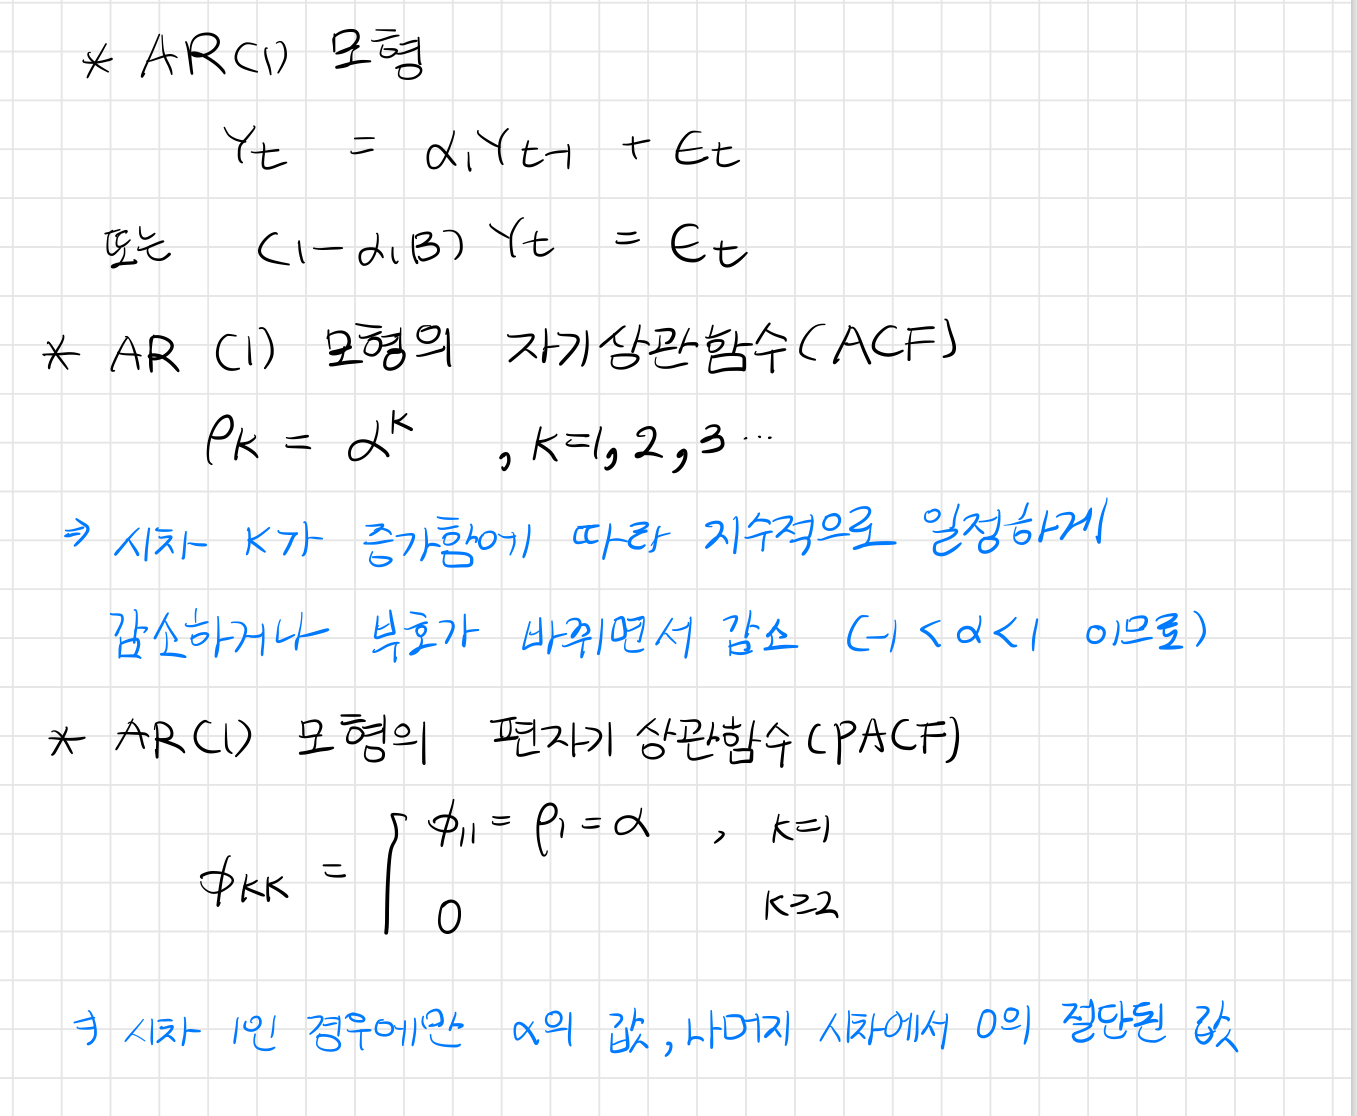 * AR(1) 모형
Yt = α1Yt-1 + εt
또는 (1-α1B) Yt = εt
* AR (1) 모형의 자기상관함수(ACF)
ρk = α^k , k=1, 2, 3 …
⇒ 시차 k가 증가함에 따라 지수적으로 일정하게
감소하거나 부호가 바뀌면서 감소 (-1 < α < 1 이므로)
* AR(1) 모형의 편자기 상관함수(PACF)
ϕkk = { ϕ11 = ρ1 = α , k=1
0 k≥2
⇒ 시차 1인 경우에만 α의 값, 나머지 시차에서 0의 절단된 값